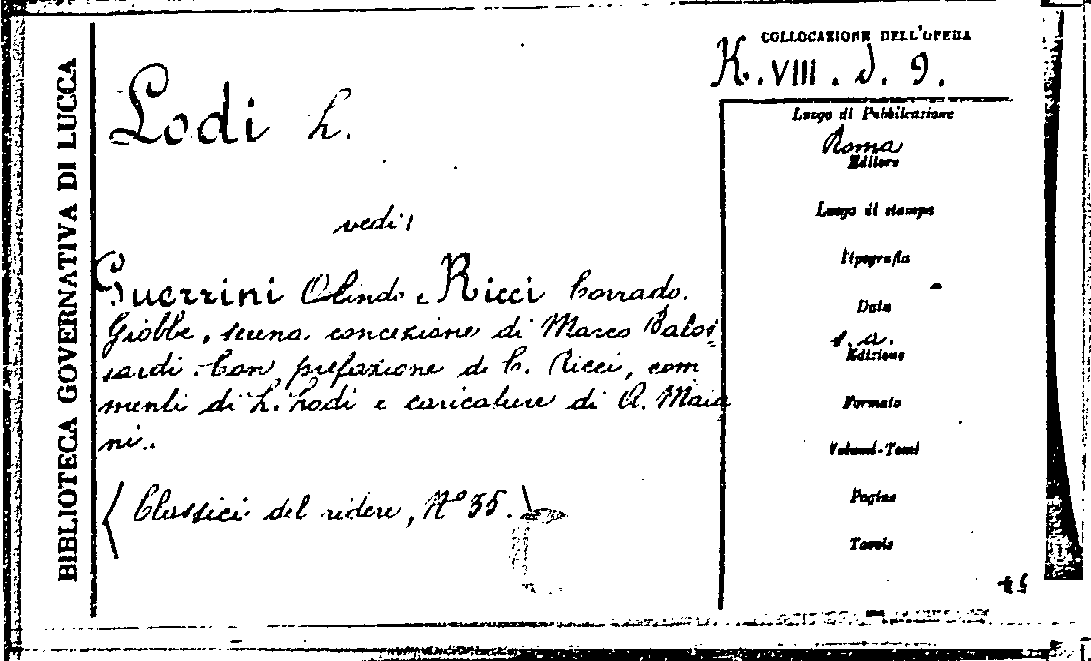 BIBLIOTECA GOVERNATIVA DI LUCCA
COLLOCAZIONE DELL'OPERA
K. VIII. d. 9.
Lodi L.
vedi!
Guerrini Olindo e Ricci Corrado.
Giobbe, serena concezione di Marco Balos
sardi. Con prefazione di C. Ricci, com
menti di L. Lodi e caricature di A. Maia
ni.
(Classici del ridere, N° 35.)
Luogo di Pubblicazione
Roma
Editore
Luogo di stampa
Tipografia
Data
s. a.
Edizione
Formato
Volumi-Tomi
Pagine
Tavole